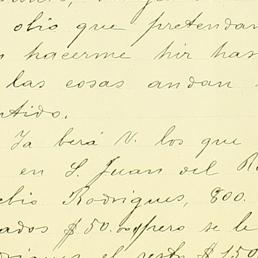 olio que pretendan
hacerme hir has
las cosas andan
tido.
Ya berá V. los que
en S. Juan del R
elio Rodrigues, 800.
ados $50.00 pero se le
rigues el resto $150